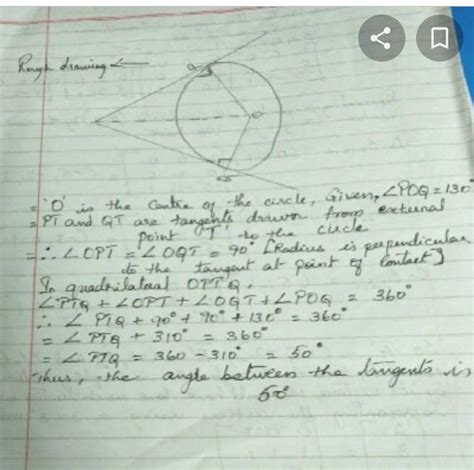 Rough drawing ←
= 'O' is the centre of the circle, Given, ∠POQ = 130°
= PT and QT are tangents drawn from external
point 'T' to the circle
= ∴ ∠OPT = ∠OQT = 90° [Radius is perpendicular
to the tangent at point of contact]
In quadrilateral OPTQ,
∠PTQ + ∠OPT + ∠OQT + ∠POQ = 360°
∴ ∠PTQ + 90° + 90° + 130° = 360°
= ∠PTQ + 310° = 360°
= ∠PTQ = 360 - 310° = 50°
Thus, the angle between the tangents is
50°